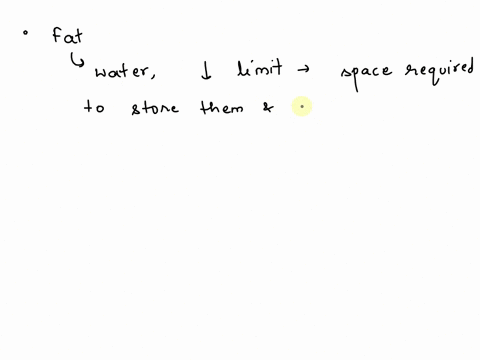 • Fat
↳ water, ↓ limit → space required
to store them &